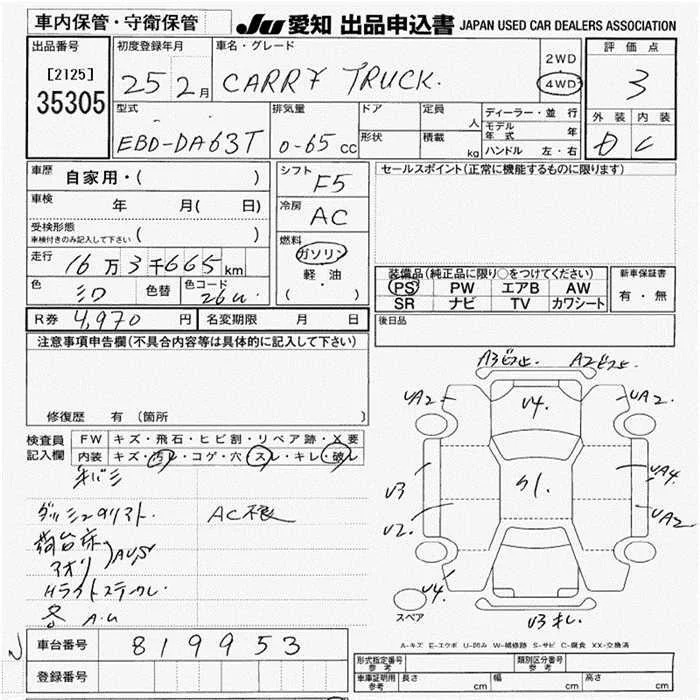 車内保管・守衛保管
JU 愛知 出品申込書 JAPAN USED CAR DEALERS ASSOCIATION
出品番号
[2125]
35305
初度登録年月
25 2月
車名・グレード
CARRY TRUCK.
2WD
4WD
評価点
3
外装 内装
D C
型式
EBD-DA63T
排気量
0-65 cc
ドア
形状
定員 人
積載 kg
ディーラー・並行
モデル年式 年
ハンドル 左・右
車歴 自家用・( )
車検 年 月( 日)
受検形態
車検付きのみ記入して下さい ( )
走行 16万3千665km
色 色替 色コード 26U
シフト F5
冷房 AC
燃料
ガソリン
軽・油
( )
セールスポイント(正常に機能するものに限ります)
装備品(純正品に限り○をつけてください)
PS PW エアB AW
SR ナビ TV カワシート
新車保証書
有・無
後日品
R券 4,970円 名変期限 月 日
注意事項申告欄(不具合内容等は具体的に記入して下さい)
修復歴 有 〔箇所 〕
検査員記入欄
FW キズ・飛石・ヒビ割・リペア跡・X要
内装 キズ・汚レ・コゲ・穴・スレ・キレ・破レ
AC不良
荷台床
アオリ AU,S
各 A.U
A3 A2
UA2 UA2.
V4.
S1.
U3 UA4
U2. UA2
U4.
スペア
U3キレ.
A-キズ E-エクボ U-凹み W-補修跡 S-サビ C-腐食 XX-交換済
車台番号 819953
登録番号
形式指定番号 参考
類別区分番号 参考
車庫証明用 参考
長さ cm 幅 cm 高さ cm